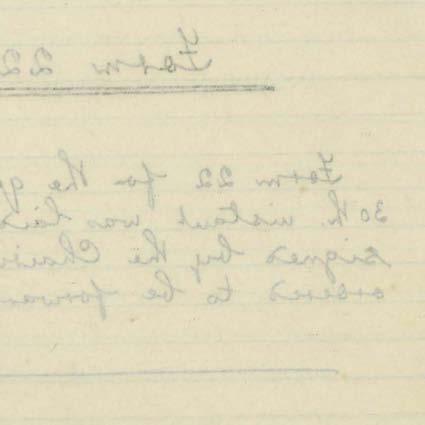 Form 22
Form 22 for the q
30th. instant was laid
signed by the Chair
ordered to be forwar